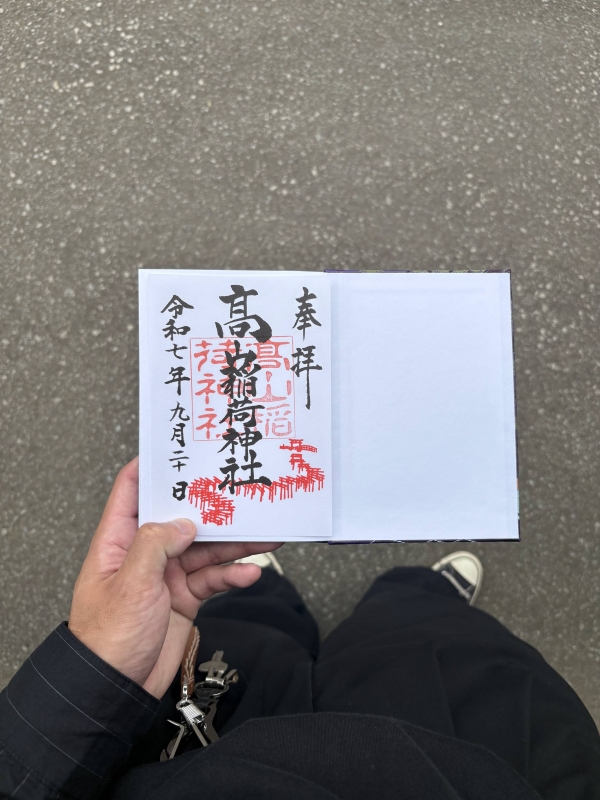 奉拝
高山稲荷神社
髙山稲
荷神社
令和七年九月二十日